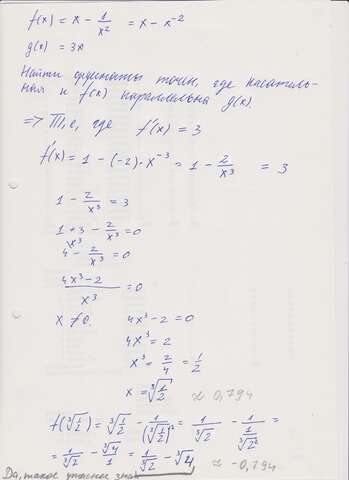 f(x) = x - 1/x² = x - x⁻²
g(x) = 3x
Найти ординаты точек, где касатель-
ная к f(x) параллельна g(x).
=> Т.е, где f'(x) = 3
f'(x) = 1 - (-2)·x⁻³ = 1 - 2/x³ = 3
1 - 2/x³ = 3
1 + 3 - 2/x³ = 0
4 - 2/x³ = 0
(4x³ - 2)/x³ = 0
x ≠ 0. 4x³ - 2 = 0
4x³ = 2
x³ = 2/4 = 1/2
x = ∛(1/2) ≈ 0,794
f(∛(1/2)) = ∛(1/2) - 1/(∛(1/2))² = 1/∛2 - 1/(1/∛2²) =
= 1/∛2 - ∛4/1 = 1/∛2 - ∛4 ≈ -0,794
Да, такое